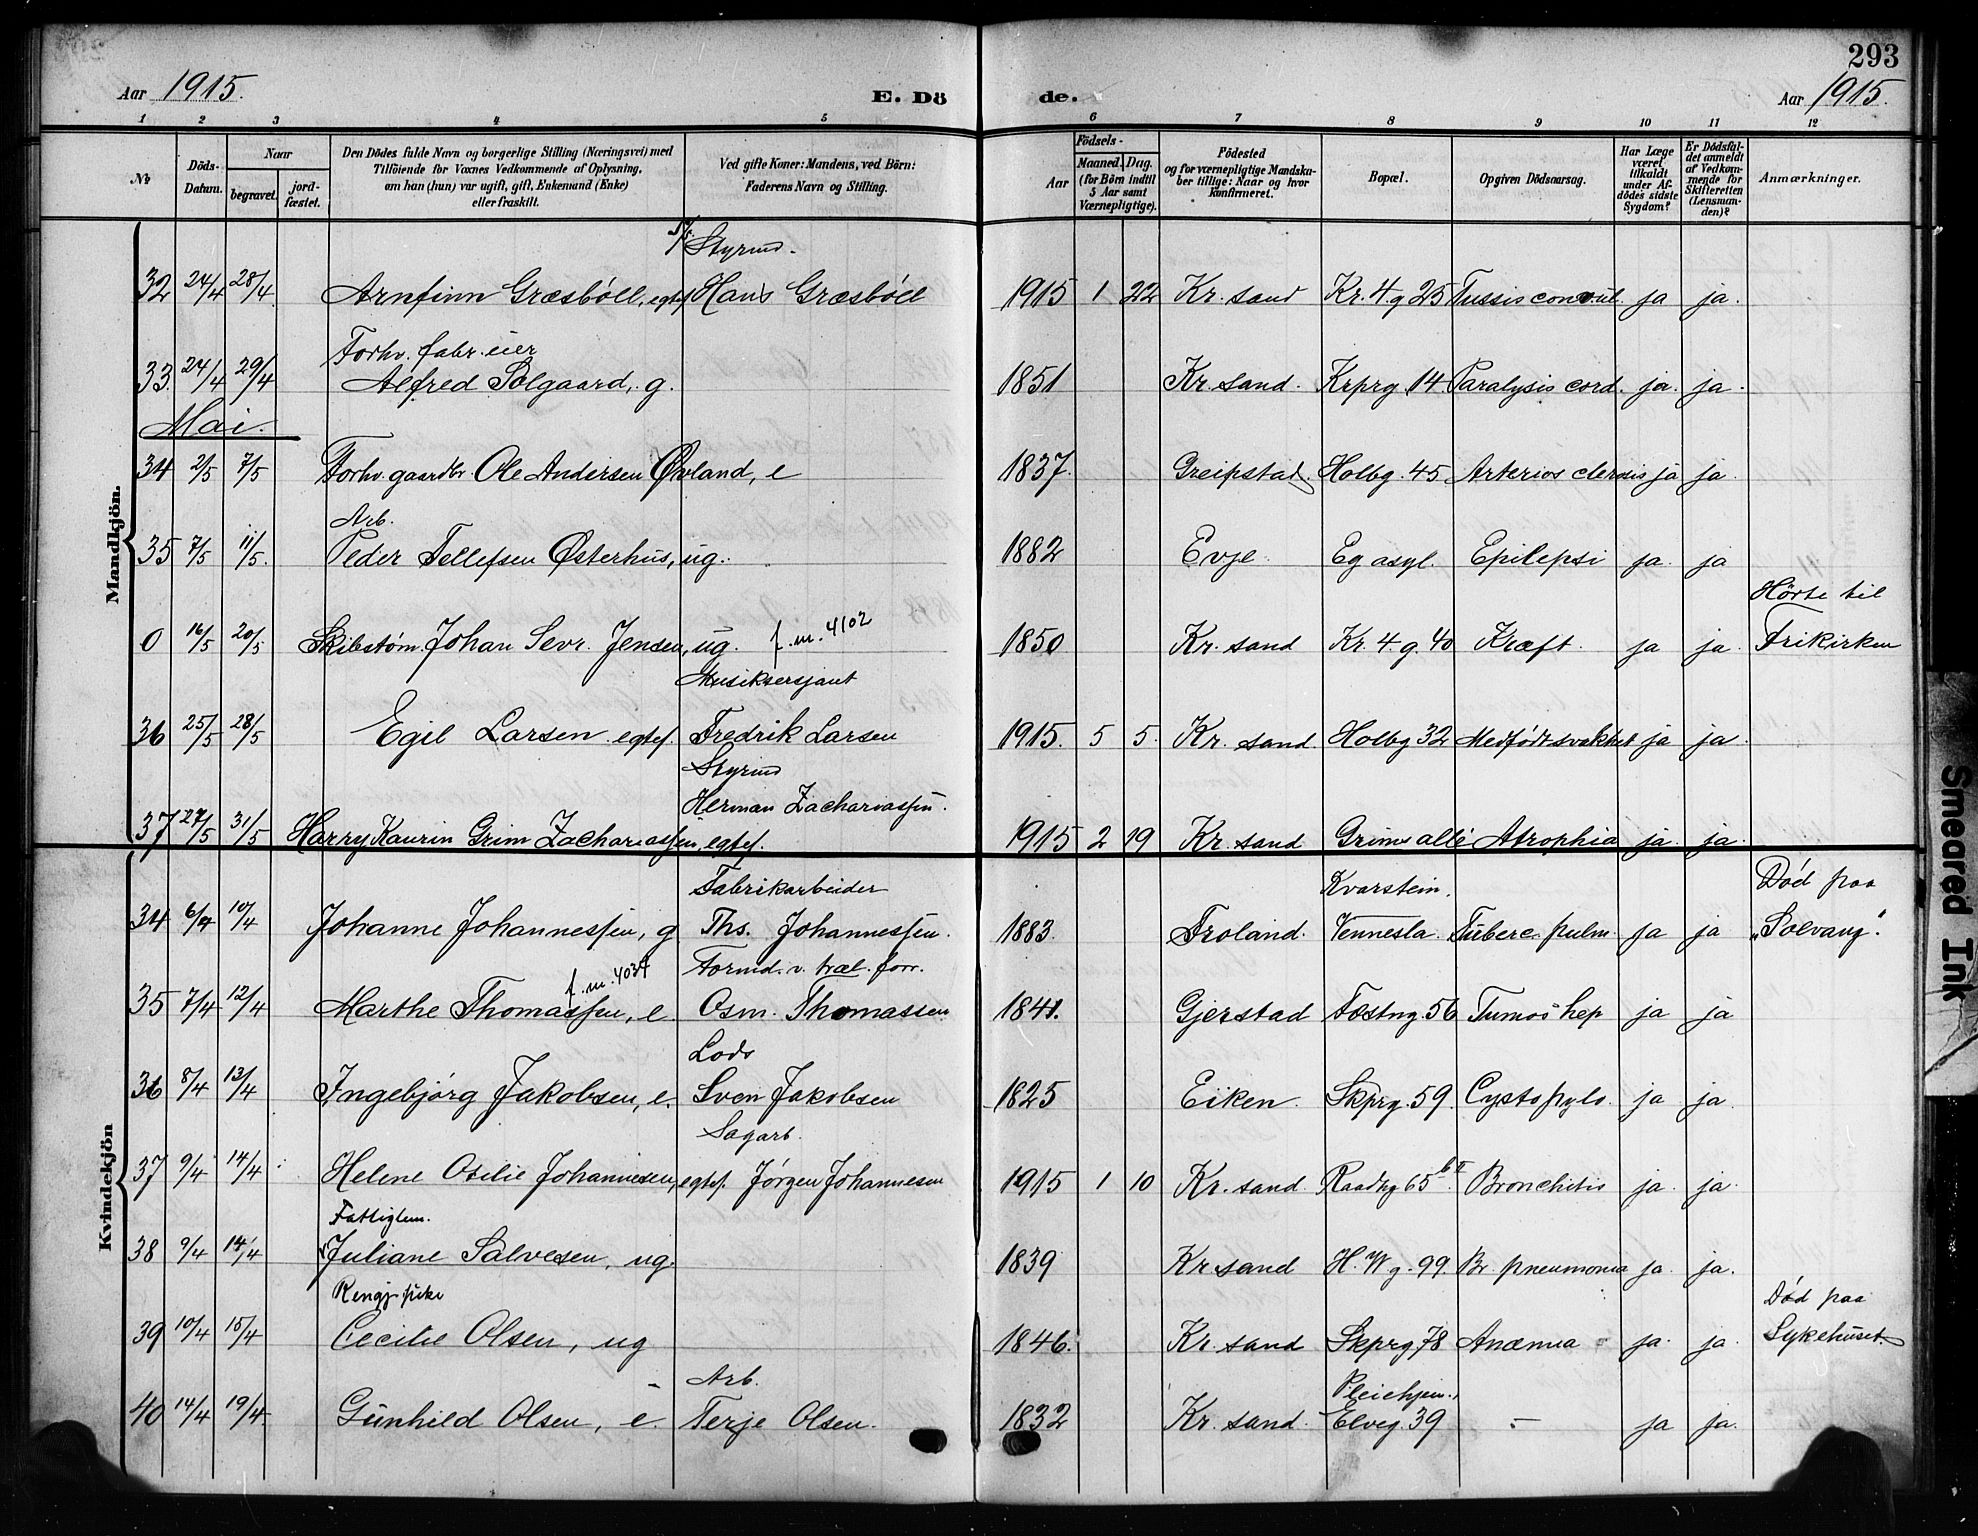 293
Aar 1915.
E. Dö de.
Aar 1915.
1 2 3 4 5 6 7 8 9 10 11 12
No
Döds-Datum.
Naar
begravet.
jord-fæstet.
Den Dödes fulde Navn og borgerlige Stilling (Næringsvei) med
Tilföiende for Voxnes Vedkommende af Oplysning,
om han (hun) var ugift, gift, Enkemand (Enke)
eller fraskilt.
Ved gifte Koner: Mandens, ved Börn:
Faderens Navn og Stilling.
Födsels-
Aar
Maaned. Dag.
(for Börn indtil
5 Aar samt
Værnepligtige).
Födested
og for værnepligtige Mandska-
ber tillige: Naar og hvor
konfirmeret.
Bopæl.
Opgiven Dödsaarsag.
Har Læge
været
tilkaldt
under Af-
dödes sidste
Sygdom?
Er Dödsfal-
det anmeldt
af Vedkom-
mende for
Skifteretten
(Lensman-
den)?
Anmærkninger.
Mandkjön.
Styrmd.
32 24/4 28/4 Arnfinn Græsböll, egtef. Hans Græsböll 1915 1 22 Kr. sand Kr. 4 g 25 Tussis convul. ja ja.
Forhv. fabr. eier
33. 24/4 29/4 Alfred Solgaard, g. 1851 Kr. sand. Krprg 14 Paralysis cord. ja. ja.
Mai.
34 2/5 7/5 Forhv. gaardbr. Ole Andersen Øvland, e 1837. Greipstad. Holbg. 45. Arterios clerosis ja ja.
Arb.
35 7/5 11/5. Peder Tellefsen Østerhus, ug. 1882 Evje. Eg asyl. Epilepsi ja. ja
Hørte til
0 16/5 20/5 Skibstøm. Johan Sevr. Jensen, ug. f. m. 4102 1850 Kr. sand Kr. 4 g. 40 Kræft. ja ja. Frikirken
Musiksersjant
36 25/5 28/5 Egil Larsen egtef. Fredrik Larsen 1915. 5 5. Kr. sand Holbg 32 Medfødt svakhet ja ja.
Styrmd
Herman Zachariassen.
37 27/5 31/5 Harry Kaurin Grim Zachariassen, egtef. 1915 2 19 Kr. sand Grims allé Atrophia ja. ja.
Kvindekjön
Fabrikarbeider Kvarstein. Død paa
34 6/4 10/4 Johanne Johannessen, g Ths. Johannessen. 1883. Froland. Vennesla. Tuberc. pulm. ja ja "Solvang".
Formd. v. træl. forr.
35 7/4 12/4 Marthe Thomassen, e. f. m. 4037 Osm. Thomassen 1841. Gjerstad Fæstng. 56 Tumor hep ja ja
Lods
36 8/4 13/4 Ingebjørg Jakobsen, e. Sven Jakobsen 1825 Eiken. Skprg. 59. Cystopyls. ja ja.
Sagarb.
37 9/4 14/4 Helene Otilie Johannesen, egtef. Jørgen Johannesen 1915 1 10 Kr. sand. Raadhg 65 b II Bronchitis ja. ja.
Fattiglem.
38 9/4 14/4 Juliane Salvesen, ug. 1839 Kr sand H. W g. 99. Br. pneumonia ja. ja.
Rengj. pike Død paa
39 10/4 15/4 Cecilie Olsen, ug 1846. Kr. sand Skprg 78 Anæmia ja. ja. Sykehuset.
Arb. Pleiehjem.
40 14/4 19/4 Gunhild Olsen, e. Terje Olsen. 1832 Kr. sand. Elveg. 39 - ja ja.
Smeared Ink